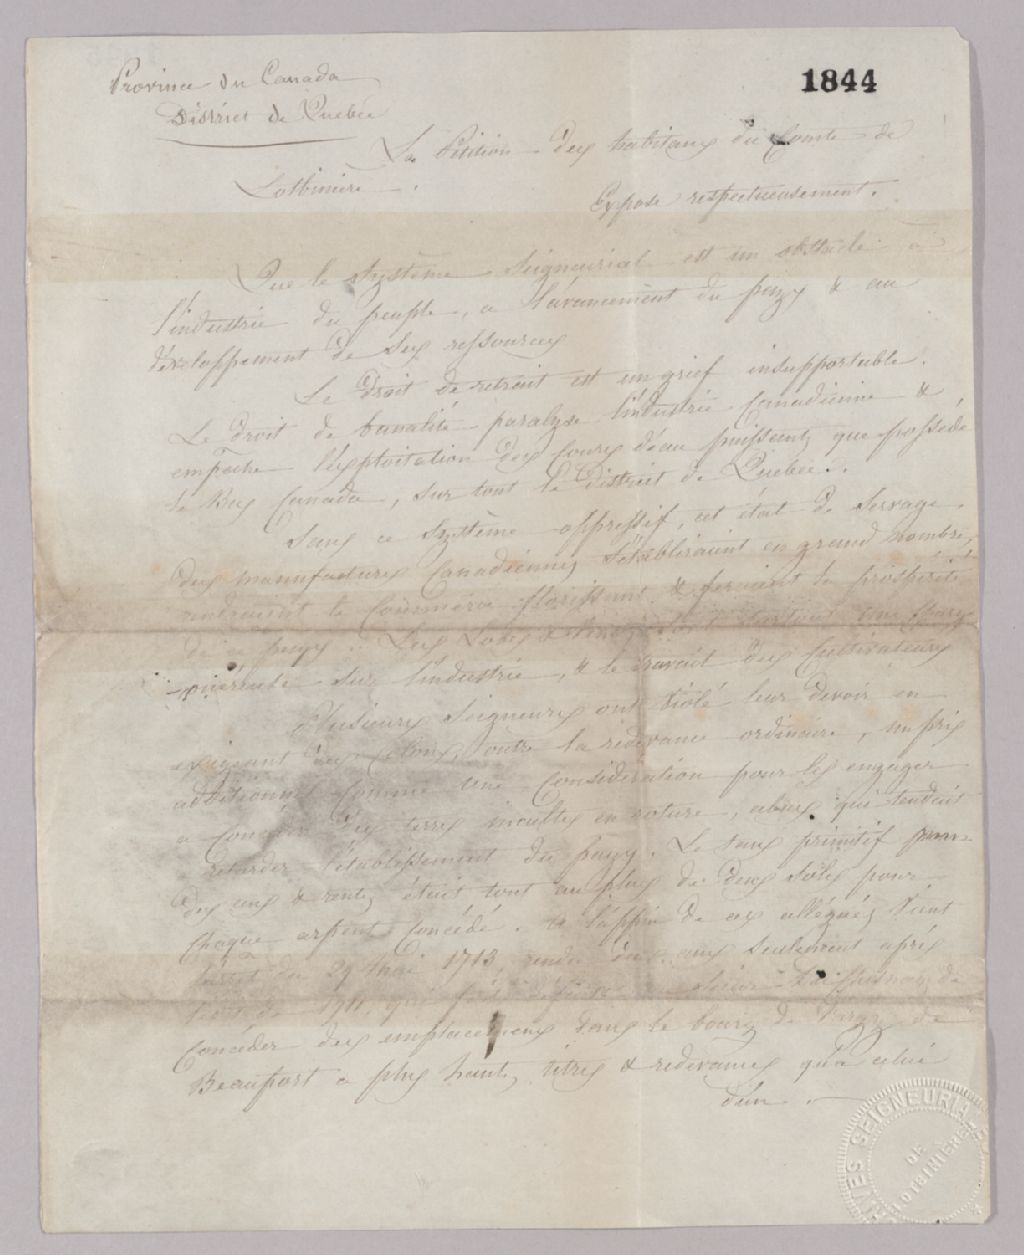 Province du Canada
District de Québec
1844
La Pétition des habitans du Comté de
Lotbinière.
Expose respectueusement.
Que le système Seigneurial est un obstacle à
l'industrie du peuple, a l'avancement du pays & au
développement de ses ressources
Le Droit de retrait est un grief insupportable.
Le Droit de banalité paralyse l'industrie Canadienne &
empêche l'exploitation des Cours d'eau puissants que possède
le Bas Canada, sur tout le District de Québec.
Sans ce système oppressif, cet état de servage,
des manufactures Canadiennes s'établiraient en grand nombre,
rendraient le Commerce florissant & feraient la prospérité
de ce pays. Les Lods & sont surtout une
sur l'industrie, & le travail des Cultivateurs
Plusieurs Seigneurs ont violé leur devoir en
exigeant des Colons, outre la redevance ordinaire, un prix
additionnel comme une Considération pour les engager
a Concéder des terres incultes en roture, abus qui tendait
a retarder l'établissement du pays. Le taux primitif
des cens & rentes était tout au plus de deux sols pour
chaque arpent Concédé. a l'appui de ces allégués vient
l'arrêt du 29 Mai 1713 rendu deux ans seulement après
de 1711, qui fait défense
Concéder des emplacemens dans le bourg de Fargy de
Beauport a plus hauts titres & redevances qu'a celui
d'un
ARCHIVES SEIGNEURIALES
DE
LOTBINIÈRE